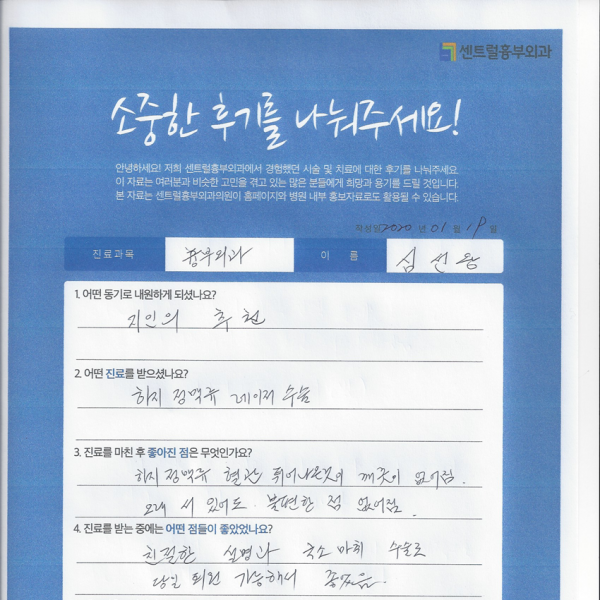 센트럴흉부외과
소중한 후기를 나눠주세요!
안녕하세요! 저희 센트럴흉부외과에서 경험했던 시술 및 치료에 대한 후기를 나눠주세요.
이 자료는 여러분과 비슷한 고민을 겪고 있는 많은 분들에게 희망과 용기를 드릴 것입니다.
본 자료는 센트럴흉부외과의원이 홈페이지와 병원 내부 홍보자료로도 활용될 수 있습니다.
작성일 2020 년 01 월 19 일
진료과목 흉부외과 이 름 심선왕
1. 어떤 동기로 내원하게 되셨나요?
지인의 추천
2. 어떤 진료를 받으셨나요?
하지 정맥류 레이저 수술
3. 진료를 마친 후 좋아진 점은 무엇인가요?
하지정맥류 혈관 튀어나온것이 깨끗이 없어짐.
오래 서 있어도 불편한 점 없어짐.
4. 진료를 받는 중에는 어떤 점들이 좋았었나요?
친절한 설명과 국소마취 수술로
당일 퇴원 가능해서 좋았음.